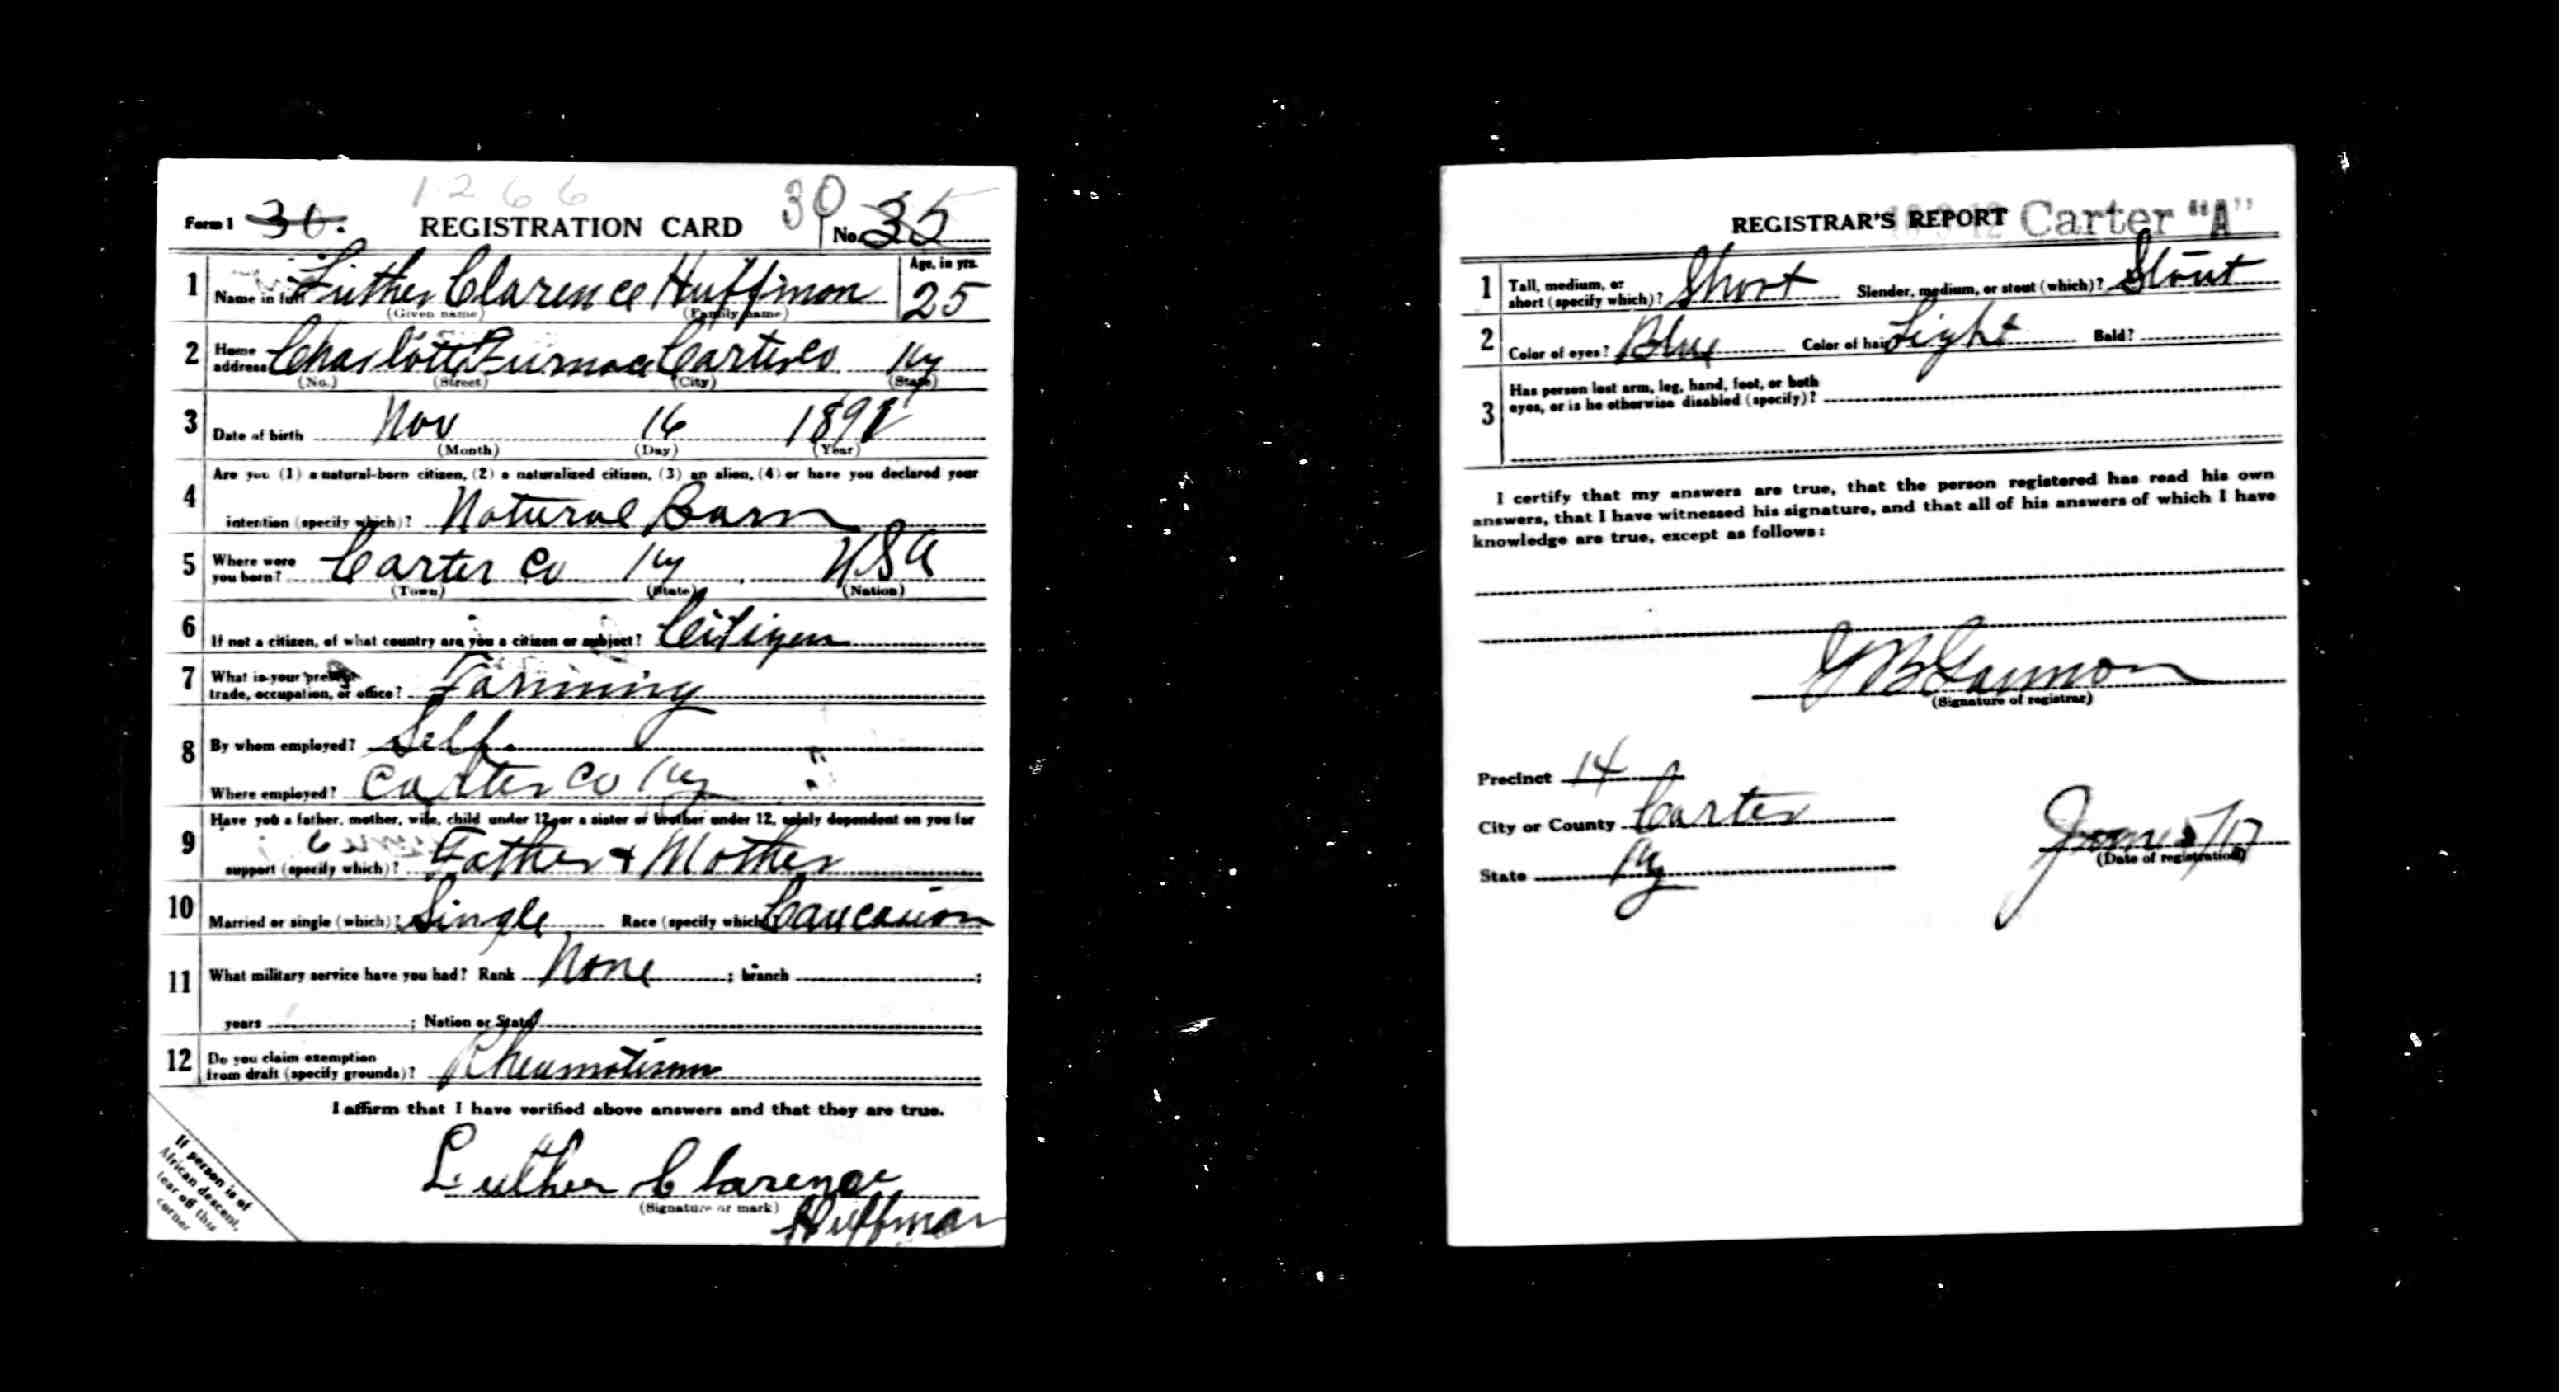 1266
Form 1 30. REGISTRATION CARD 30 No. 35
1 Name in full Luther Clarence Huffmon Age, in yrs. 25
(Given name) (Family name)
2 Home address Charlotte Furnace Carter Co Ky
(No.) (Street) (City) (State)
3 Date of birth Nov 16 189
(Month) (Day) (Year)
4 Are you (1) a natural-born citizen, (2) a naturalized citizen, (3) an alien, (4) or have you declared your
intention (specify which)? Natural Born
5 Where were you born? Carter Co Ky USA
(Town) (State) (Nation)
6 If not a citizen, of what country are you a citizen or subject? Citizen
7 What is your present trade, occupation, or office? Farming
8 By whom employed? Self
Where employed? Carter Co Ky
9 Have you a father, mother, wife, child under 12, or a sister or brother under 12, solely dependent on you for
support (specify which)? Father & Mother
10 Married or single (which)? Single Race (specify which)? Caucasion
11 What military service have you had? Rank None ; branch ;
years ; Nation or State
12 Do you claim exemption from draft (specify grounds)? Rheumatism
I affirm that I have verified above answers and that they are true.
Luther Clarence
(Signature or mark) Huffman
If person is of
African descent,
tear off this
corner
REGISTRAR'S REPORT Carter "A"
1 Tall, medium, or short (specify which)? Short Slender, medium, or stout (which)? Stout
2 Color of eyes? Blue Color of hair Light Bald?
3 Has person lost arm, leg, hand, foot, or both
eyes, or is he otherwise disabled (specify)?
I certify that my answers are true, that the person registered has read his own
answers, that I have witnessed his signature, and that all of his answers of which I have
knowledge are true, except as follows:
(Signature of registrar)
Precinct 14
City or County Carter
State Ky
June 5/17
(Date of registration)